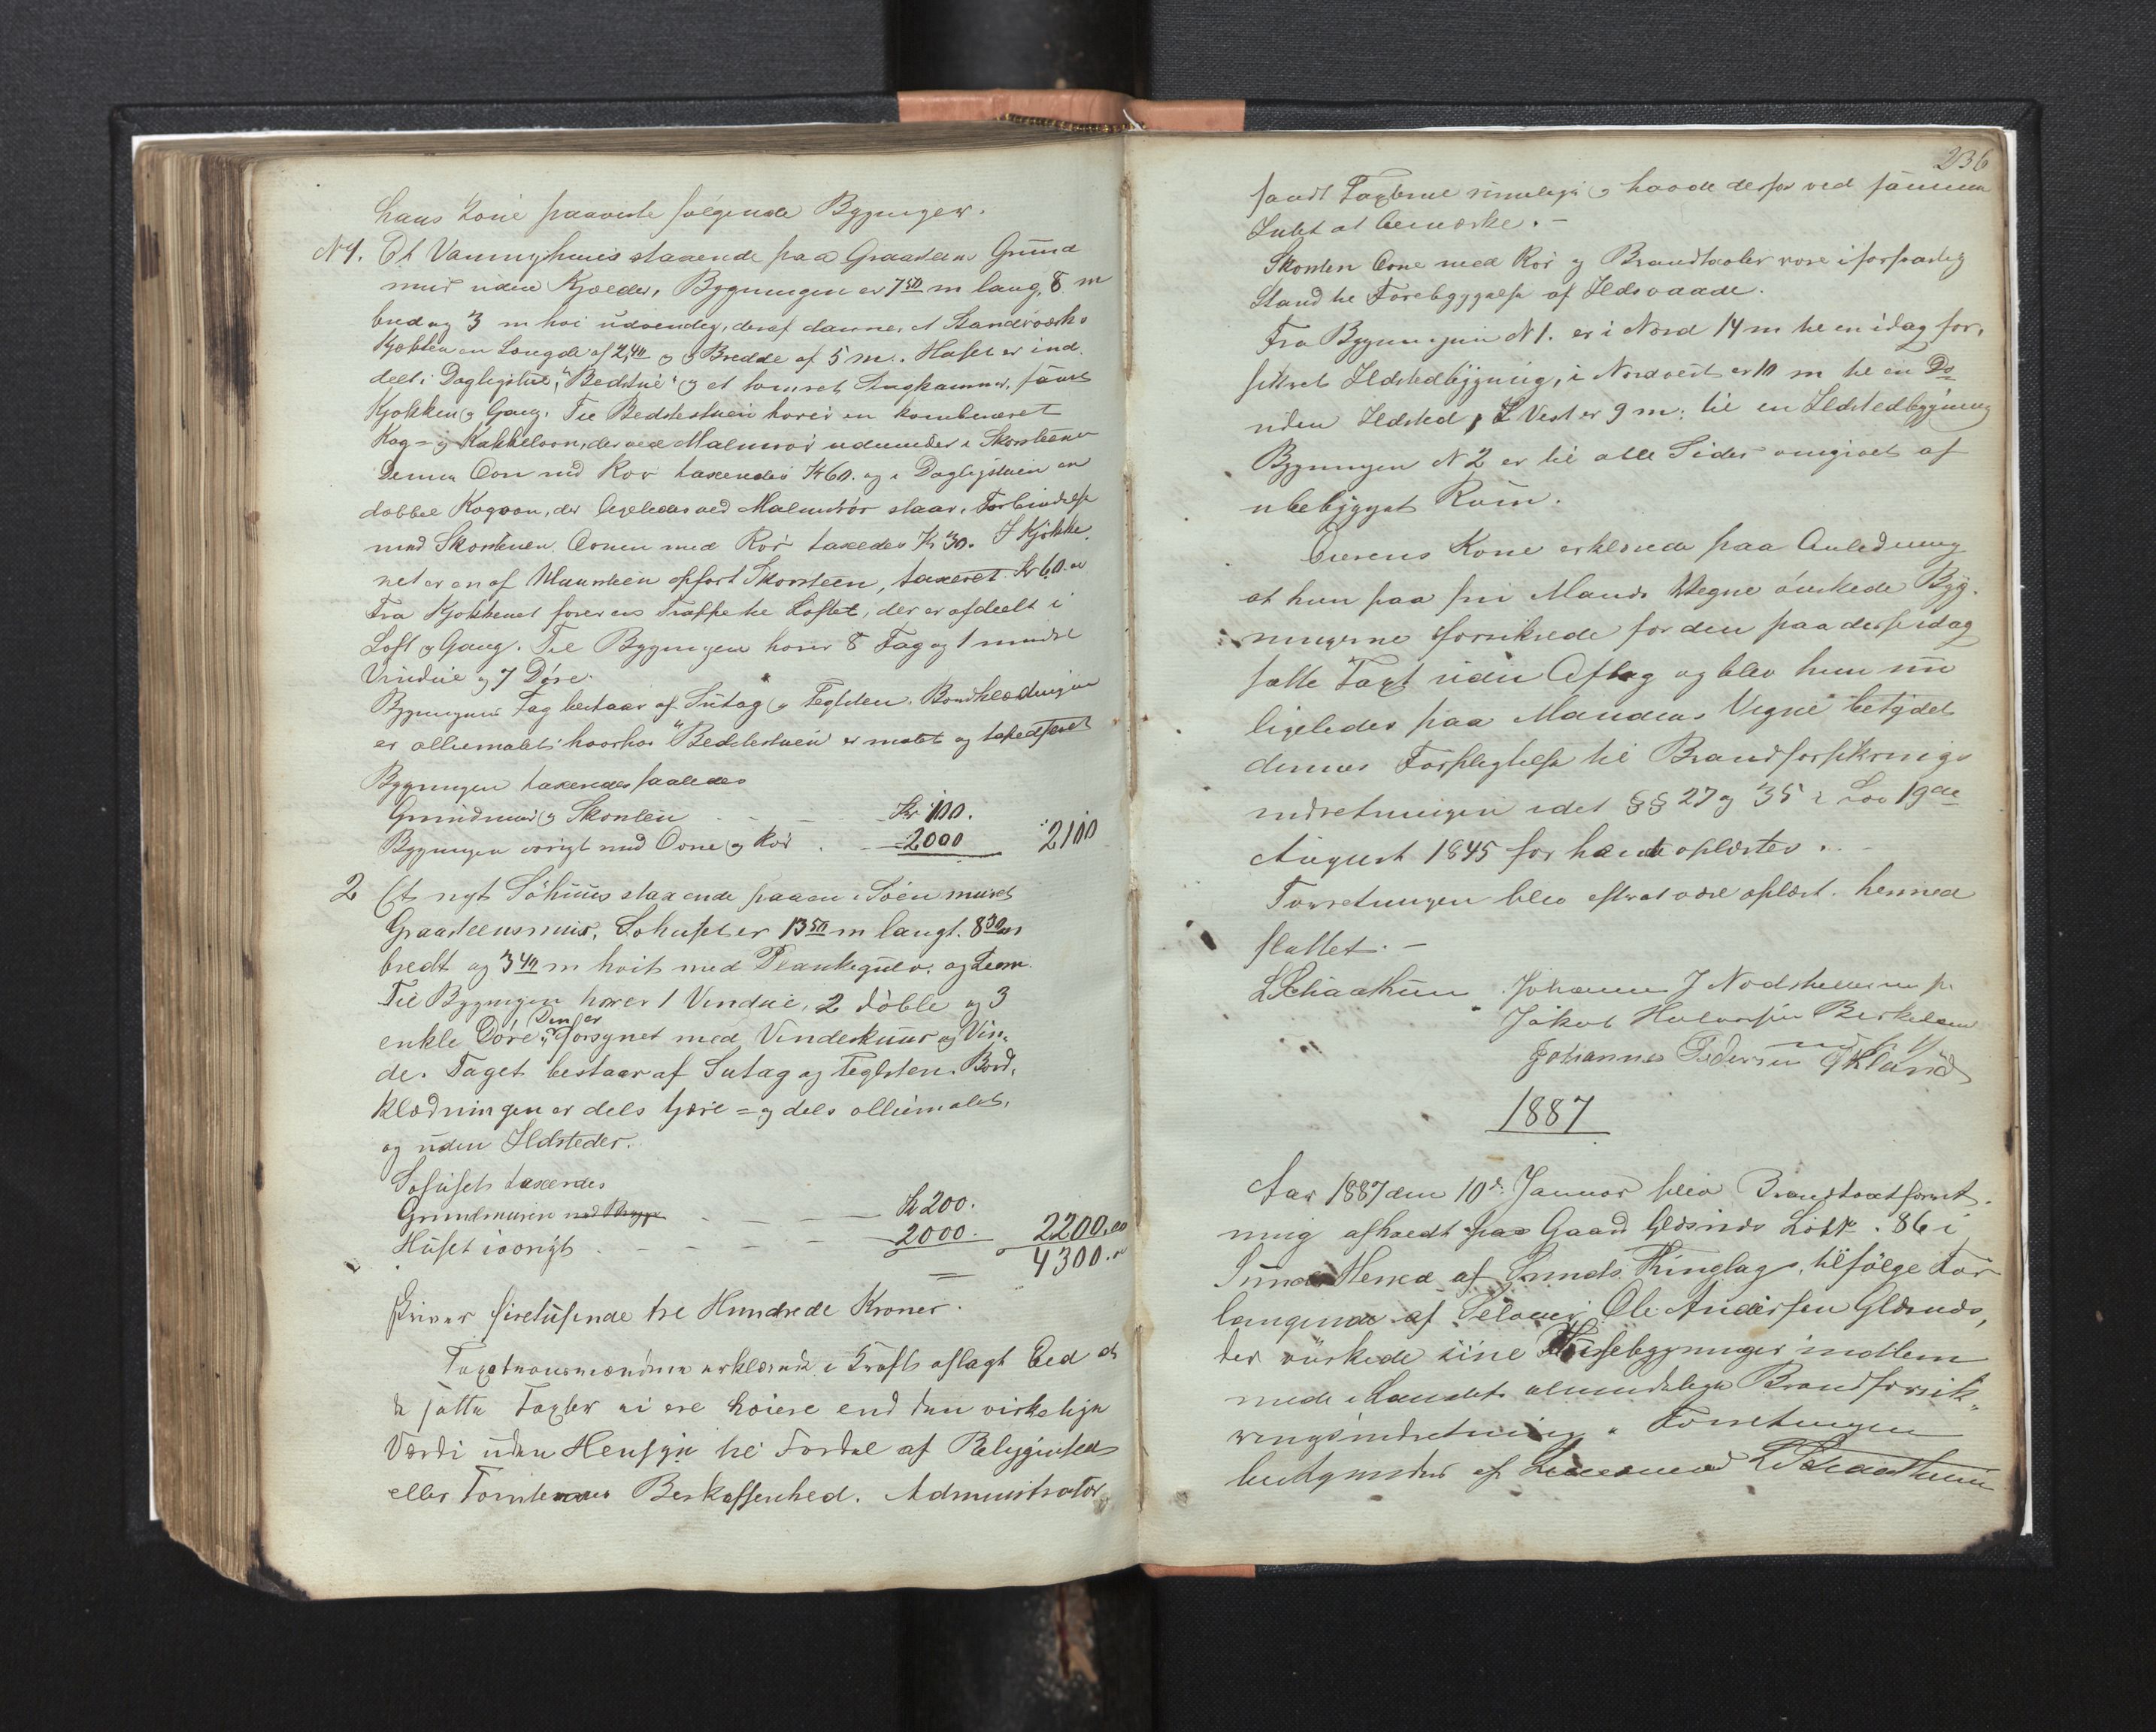 hans Kone paaviste følgende Bygninger.
N 1. Et Vaaningshuus staaende paa Graasteen Grund
muur uden Kjælder, Bygningen er 7 50 m lang, 8 m
bred og 3 m høi udvendig, deraf danner et Standværks
Kjøkken en Længde af 2,40 og Bredde af 5 m. Huset er ind
deelt i Dagligstue, "Bedstue" og et tømret Sengkammer, samt
Kjøkken og Gang. Til Bedstestuen hører en kombineret
Kog = og Kakkelovn, der ved Malmrør udmunder i Skorstenen
Denne Ovn med Rør taxeredes Kr 60. og i Dagligstuen en
dobbel Kogovn, der ligeledes ved Malmrør staar i Forbindelse
med Skorstenen. Ovnen med Rør taxeredes Kr 30. I Kjøkke
net er en af Muursteen opført Skorsteen, taxeret Kr 60.
Fra Kjøkkenet fører en Trappe til Loftet, der er afdeelt i
Loft og Gang. Til Bygningen hører 8 Fag og 1 mindre
Vindue og 7 Døre.
Bygningens Tag bestaar af Sutag og Teglsten. Bordklædningen
er olliemalet hvorhos "Bedstestuen" er malet og tapedseret
Bygningen taxeredes saaledes
Grundmuur og Skorsten Kr 100.
Bygningen øvrigt med Ovne og Rør 2000 2100
2 Et nyt Søhuus staaende paa en i Søen muret
Graasteensmuur. Søhuset er 13 50 m langt. 8 30 m
bredt og 3 40 m høit med Plankegulv. og Lem.
Til Bygningen hører 1 Vindue, 2 doble og 3
enkle Døre, Den er forsynet med Vindeskuur og Vin-
de. Taget bestaar af Sutag og Teglsten. Bord,
klædningen er dels tjære = og dels olliemalet,
og uden Ildsteder.
Søhuset taxeredes
Grundmuren med Brygge Kr 200.
Huset iøvrigt 2000. 2200,00
4300.
skriver firetusende tre Hundrede Kroner.
Taxationsmændene erklærede i Kraft aflagt Eed at
de satte Taxter ei ere høiere end den virkelige
Værdi uden Hensyn til Fordel af Beliggenhed
eller Tomternes Beskaffenhed. Administrator
236
fandt Taxterne rimelige og havde derfor ved samme
Intet at bemærke. -
Skorsten Ovne med Rør og Brandtavler vare i forsvarlig
Stand til Forebyggelse af Ildsvaade.
Fra Bygningen N 1. er i Nord 14 m til en idag for,
sikret Ildstedbygning, i Nordvest er 10 m til en Do
uden Ildsted, I Vest er 9 m. til en Ildstedbygning
Bygningen N 2 er til alle Sider omgivet af
ubebygget Rum.
Eierens Kone erklærede paa Anledning
at hun paa sin Mands Vegne ønskede Byg-
ningerne forsikrede for den paa disse idag
satte Taxt uden Aftag og blev hun nu
ligeledes paa Mandens Vegne betydet
dennes Forpligtelse til Brandforsikrings
indretningen idet §§ 27 og 35 i Lov 19de
August 1845 for hende oplæstes. -
Forretningen blev efter at være oplæst. hermed
sluttet. -
LSchaathun Johannes J Nodsteen m p
Jakob Halvorsen Birkeland
m p
Johannes Pedersen Økland
1887
Aar 1887 den 10de Januar blev Brandtaxtforret-
ning afholdt paa Gaard Glæsnes Løb . 86 i
Sunds Herred af Sunds Thinglag, tilfølge For
langende af Selveier Ole Andersen Glæsnes,
der ønskede sine Husebygninger indlem
mede i Landets almindelige Brandforsik-
ringsindretning. Forretningen
bestyredes af Lensmand LSchaathun